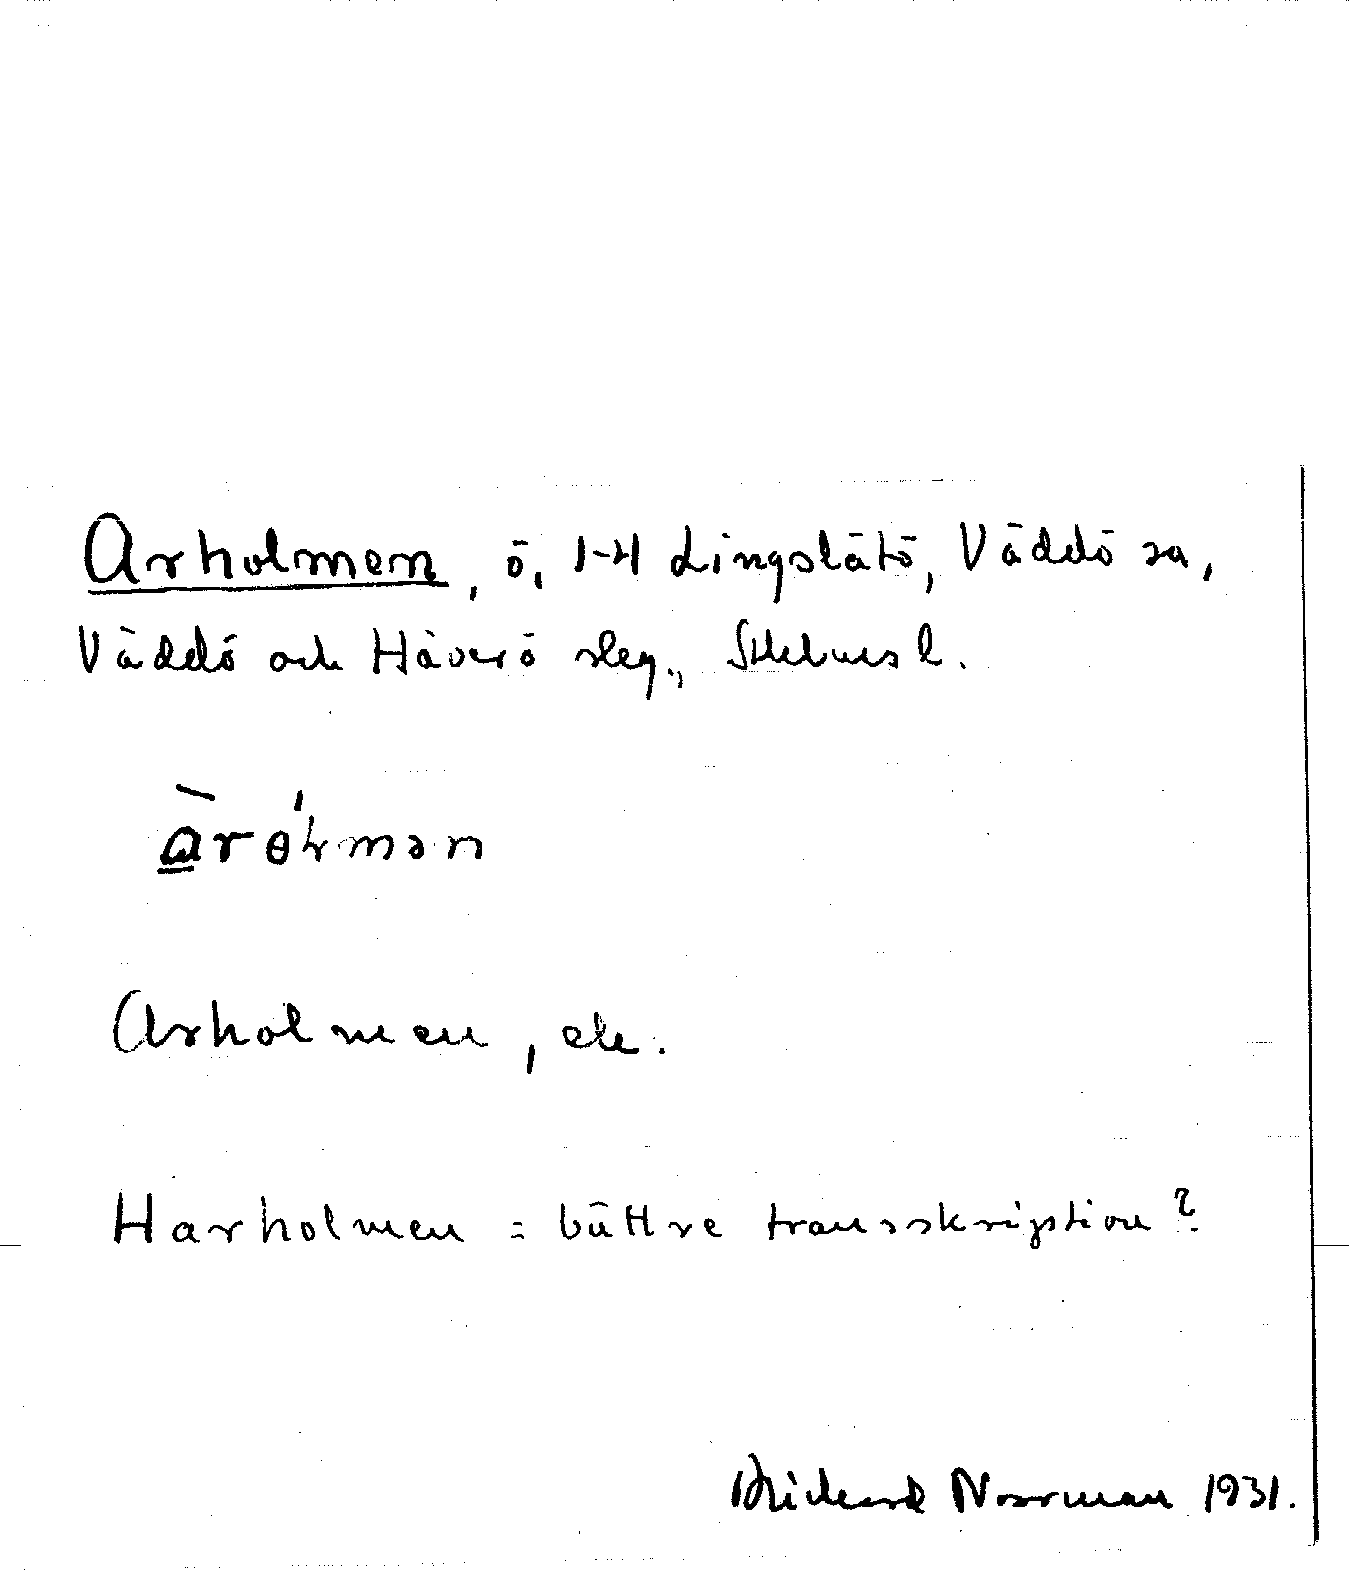 Arholmen, ö, 1-4 Lingslätö, Väddö sn,
Väddö och Häverö skeg., Sthlms l.
àrɵ́ɫmən
Arholmen, ek.
Harholmen = bättre transskription?
Rickard Norrman 1931.